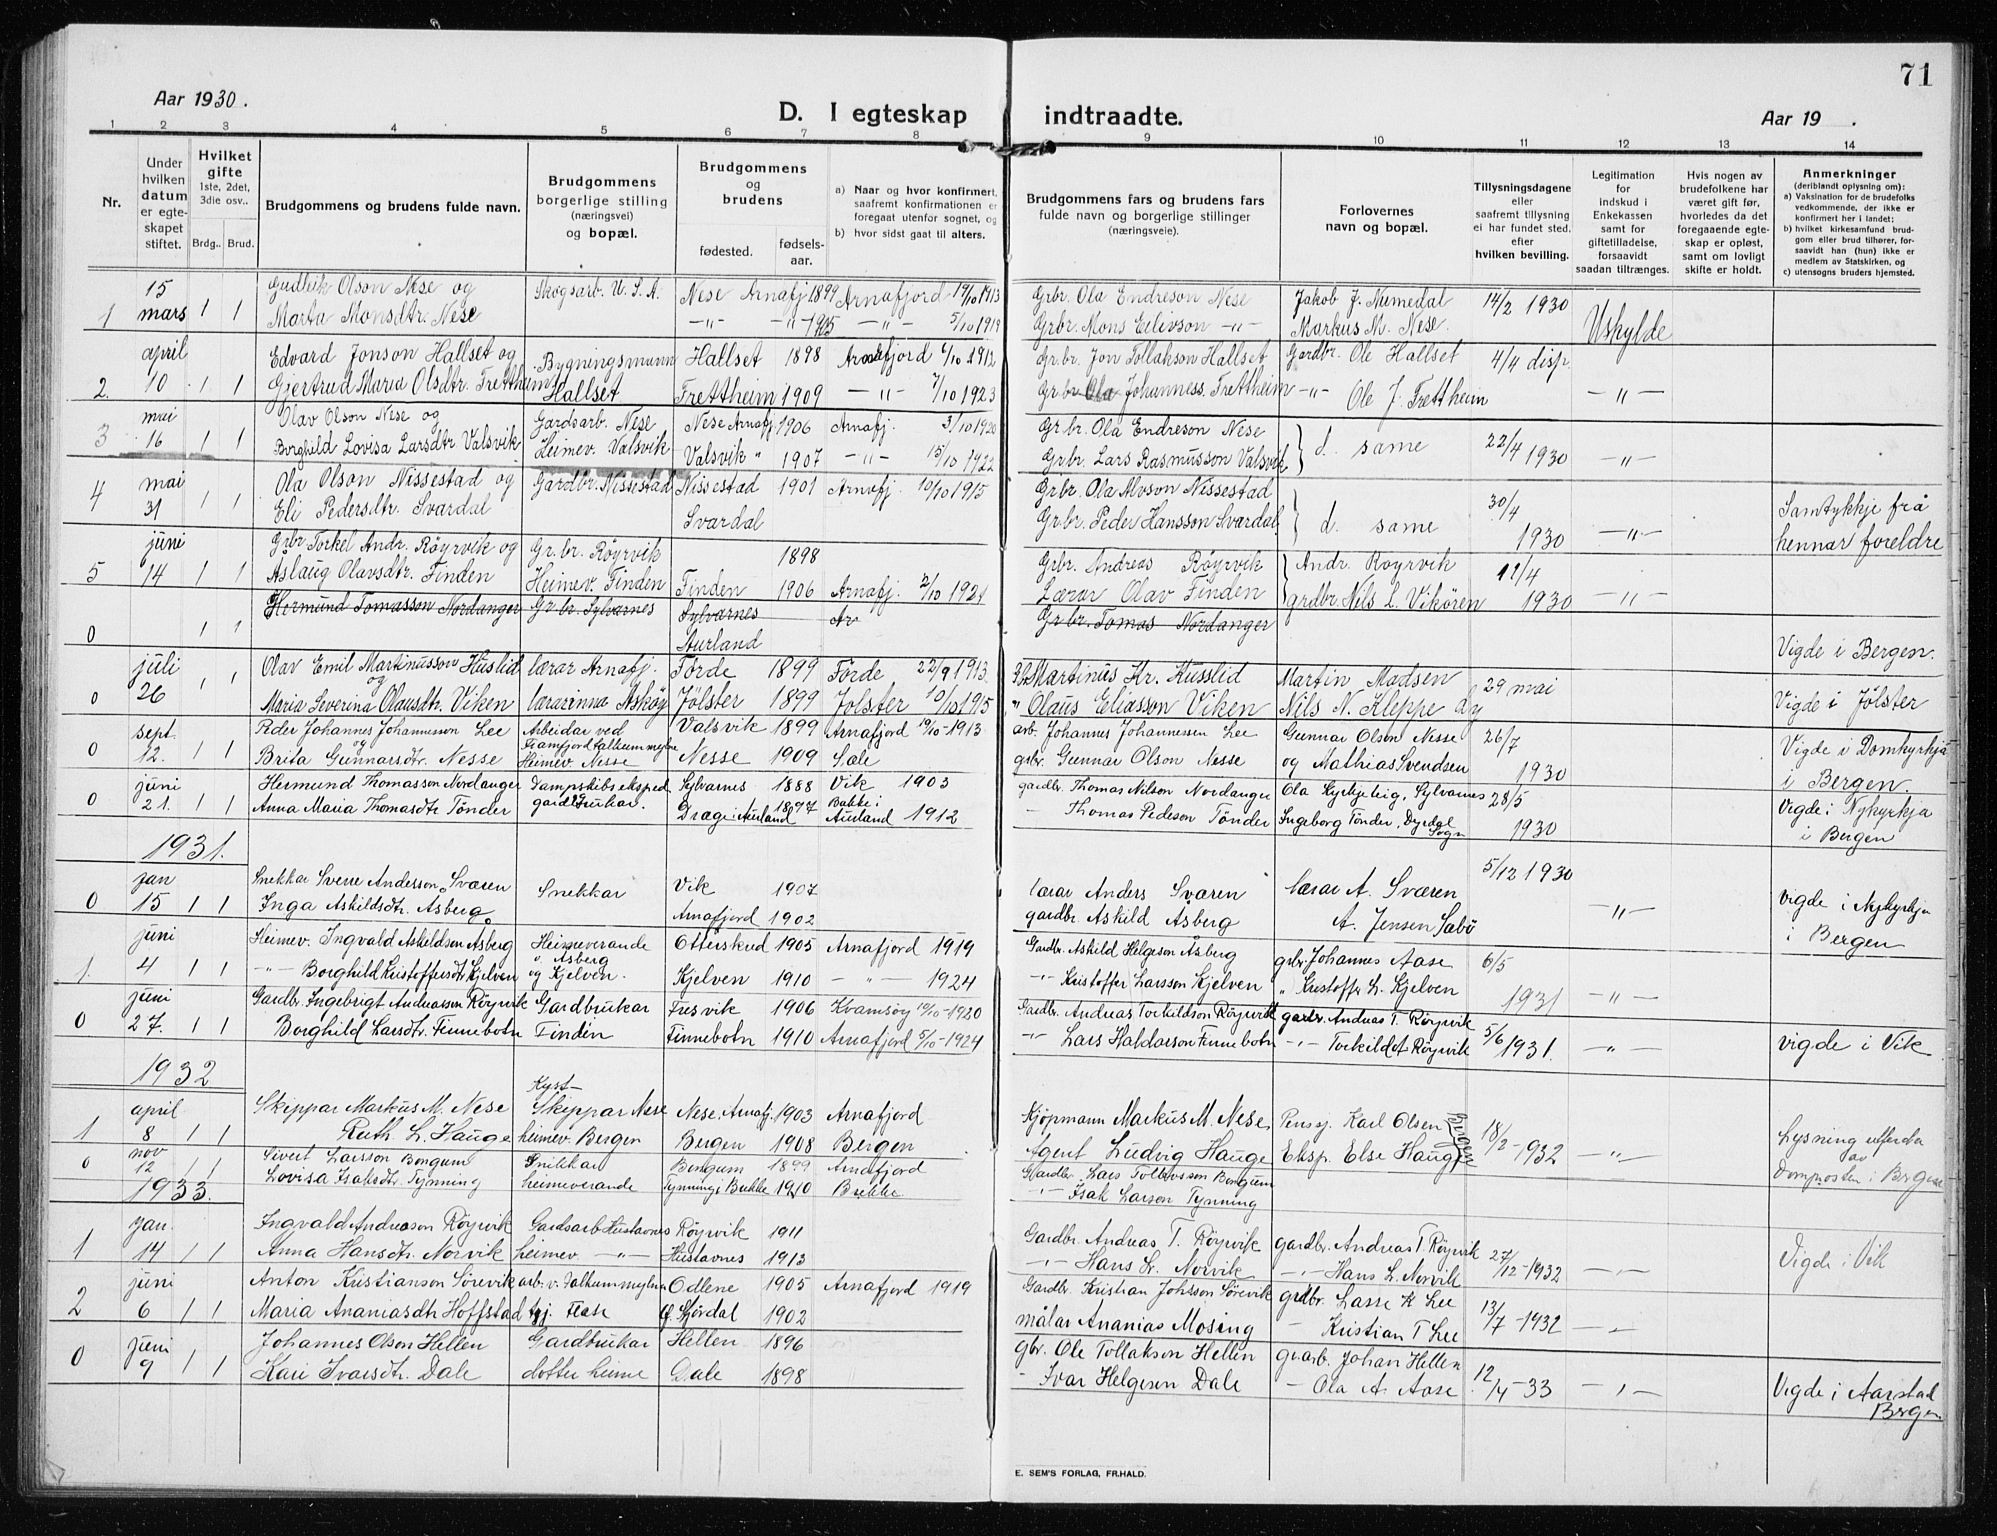 71
Aar 1930.
D. I egteskap indtraadte.
Aar 19 .
1 2 3 4 5 6 7 8 9 10 11 12 13 14
Nr.
Under hvilken datum er egteskapet stiftet.
Hvilket gifte 1ste, 2det, 3die osv..
Brdg.. Brud.
Brudgommens og brudens fulde navn.
Brudgommens borgerlige stilling (næringsvei) og bopæl.
Brudgommens og brudens
fødested. fødselsaar.
a) Naar og hvor konfirmert, saafremt konfirmationen er foregaat utenfor sognet, og
b) hvor sidst gaat til alters.
Brudgommens fars og brudens fars fulde navn og borgerlige stillinger (næringsveie).
Forlovernes navn og bopæl.
Tillysningsdagene eller saafremt tillysning ei har fundet sted, efter hvilken bevilling.
Legitimation for indskud i Enkekassen samt for giftetilladelse, forsaavidt saadan tiltrænges.
Hvis nogen av brudefolkene har været gift før, hvorledes da det foregaaende egteskap er opløst, samt om lovligt skifte er holdt.
Anmerkninger (deriblandt oplysning om):
a) Vaksination for de brudefolks vedkommende, der ikke er konfirmert her i landet:
b) hvilket kirkesamfund brudgom eller brud tilhører, forsaavidt han (hun) ikke er medlem av Statskirken, og
c) utensogns bruders hjemsted.
15 Gudleik Olson Nese og Skogsarb. U.S.A. Nese Arnafj 1899 Arnafjord 19/10 1913 Grbr Ola Endreson Nese Jakob J. Numedal 14/2 1930
1 mars 1 1 Marta Monsdtr. Nese -"- -"- 1905 -"- 5/10 1919 Grbr. Mons Eilivson -"- Markus M. Nese. Uskylde
april Edvard Jonson Hallset og Bygningsmann Hallset 1898 Arnafjord 6/10 1912 Gr.br. Jon Tollakson Hallset Gardbr. Ole Hallset 4/4 disp.
2. 10 1 1 Gjertrud Maria Olsdtr. Frettheim Hallset Frettheim 1909 -"- 7/10 1923 Gr.br. Ola Johanness. Frettheim -"- Ole J. Frettheim -"-
mai Olav Olson Nese og Gardsarb. Nese Nese Arnafj. 1906 Arnafj. 3/10 1920 Gr.br. Ola Endreson Nese
3 16 1 1 Borghild Lovisa Larsdtr Valsvik Heimev. Valsvik Valsvik " 1907 -"- 15/10 1922 Grbr. Lars Rasmusson Valsvik d. same 22/4 1930 -"-
mai Ola Olson Nissestad og Gardbr. Nissestad Nissestad 1901 Arnafj. 10/10 1915 Grbr. Ola Nissestad 30/4 Samtykkje frå
4 31 1 1 Eli Pedersdtr. Svardal Svardal Gr.br. Peder Hansson Svardal d. same 1930 -"- hennar foreldre
juni Grbr Torkel Andr. Röyrvik og Gr.br. Röyrvik 1898 Grbr. Andreas Röyrvik Andr. Röyrvik 11/4
5 14 1 1 Åslaug Olavsdtr. Finden Heimev. Finden Finden 1906 Arnafj. 2/10 1921 Lærar Olav Finden grdbr. Nils L. Vikören 1930 -"-
0 1 1 Hermund Tomasson Nordanger Gr.br. Sylvarnes Sylvarnes Ar Gr.br. Tomas Nordanger
Aurland Vigde i Bergen.
juli Olav Emil Martinusson Huslid lærar Arnafj. Förde 1899 Förde 22/9 1913. Martinus Kr. Husslid Martin Madsen 29 mai
0 26 1 1 og Maria Severina Olausdtr. Viken lærarinna Askøy Jölster 1899 Jolster 10/10 " Olaus Eliasson Viken Nils N. Kleppe Vigde i Jølster
sept. Peder Johannes Johannesson Lee Arbeidar ved Valsvik 1899 Arnafjord 19/10-1913 arb. Johannes Johannessen Lee Gunnar Olson Nesse 26/7 Vigde i Domkyrkja
0 12. 1 1 og Brita Gunnarsdtr. Nesse Heimev. Nesse Nesse 1909 Sæle grbr. Gunnar Olson Nesse og Mathias Svendsen 1930 i Bergen.
juni Hermund Thomasson Nordanger Dampskibseksped. Sylvarnes 1888 Vik 1903 gardbr. Thomas Nilson Nordanger Ola Kyrkjeteig, Sylvarnes 28/5 Vigde i Nykyrkja
0 21. 1 1 Anna Maria Thomasdtr Tønder gardbrukar. Aurland 1897 Bakke i Aurland 1912 - Thomas Pedeson Tønder Ingeborg Tønder, Dyrdal Sogn 1930 i Bergen
1931.
jan Snekkar Sverre Anderson Sværen Snekkar Vik 1907 lærar Anders Sværen lærar A. Sværen 5/12 1930 vigde i Nykyrkja
0 15 1 1 Inga Askildsdtr. Asberg. Arnafjord 1902 gardbr. Askild Asberg A. Jensen Sæbö -"- i Bergen
juni Heimev. Ingvald Askildsen Asberg Heimeverande Otterskred 1905 Arnafjord 1919 Gardbr. Askild Helgeson Åsberg grbr. Johannes Aase 6/5
1. 4 1 1 -"- Borghild Kristoffersdtr Kjelven v. Asberg og Kjelven. Kjelven 1910 -"- 1924 -"- Kristoffer Larsson Kjelven " Kristoffr L. Kjelven 1931 -"-
juni Gardbr. Ingebrigt Andreassen Röyrvik Gardbrukar Fresvik 1906 Kvamsöy 10/10-1920 Gardbr. Andreas Torkildson Röyrvik gardbr. Andreas T. Röyrvik 5/6
0 27. 1 1 Borghild Larsdtr. Finnebotn Finden Finnebotn 1910 Arnafjord 5/10-1924 -"- Lars Haldorson Finnebotn -"- Torkild Röyrvik 1931. -"- vigde i Vik
1932
april Skippar Markus M. Nese Kyst-Skippar Nese Nese, Arnafj. 1903 Arnafjord Kjøpmann Markus M. Nese. Pensj. Karl Olsen Bergen 18/2-1932 Lysning utferda
1 8 1 1 Ruth L. Hauge heimev. Bergen Bergen 1908 Bergen Agent Ludvig Hauge Eksp. Else Hauge -"- av Domprosten i Bergen
0 nov 12 1 1 Sivert Larsson Bongum Snikkar Bongum 1899 Arnafjord Gardbr. Lars Tollefsson Bongum
Lovisa Isaksdtr. Tynning heimeverande Tynning i Bakke 1910 Bakke -"- Isak Larson Tynning
1933.
jan. Ingvald Andreason Röyrvik Gardsarb Hustavnes Röyrvik 1911 Gardbr. Andreas T. Röyrvik gardbr. Andreas T Röyrvik 27/12-1932 Vigde i Vik
1 14 1 1 Anna Hansdtr. Norvik heimev. -"- Hustavnes 1913 -"- Hans L. Norvik -"- Hans L. Norvik -"-
juni Anton Kristianson Sörevik arb. v. Odlene 1905 Arnafjord 1919 Gardbr. Kristian Johsson Sörevik grdbr. Lasse K Lee 13/7-1932
2 6 1 1 Maria Ananiasdtr Hoffstad Stjördal 1902 målar Ananias Mosing - Kristian T Lee -"-
juni Johannes Olson Hellen Gardbrukar Hellen 1896 gbr. Ole Tollakson Hellen Johan Hellen 12/4-33
0 9 1 1 Kari Ivarsdtr. Dale dotter heime Dale 1898 - Ivar Helgeson Dale - Ola A. Aase -"- Vigde i Aarstad Bergen
E. SEM'S FORLAG, FR.HALD.